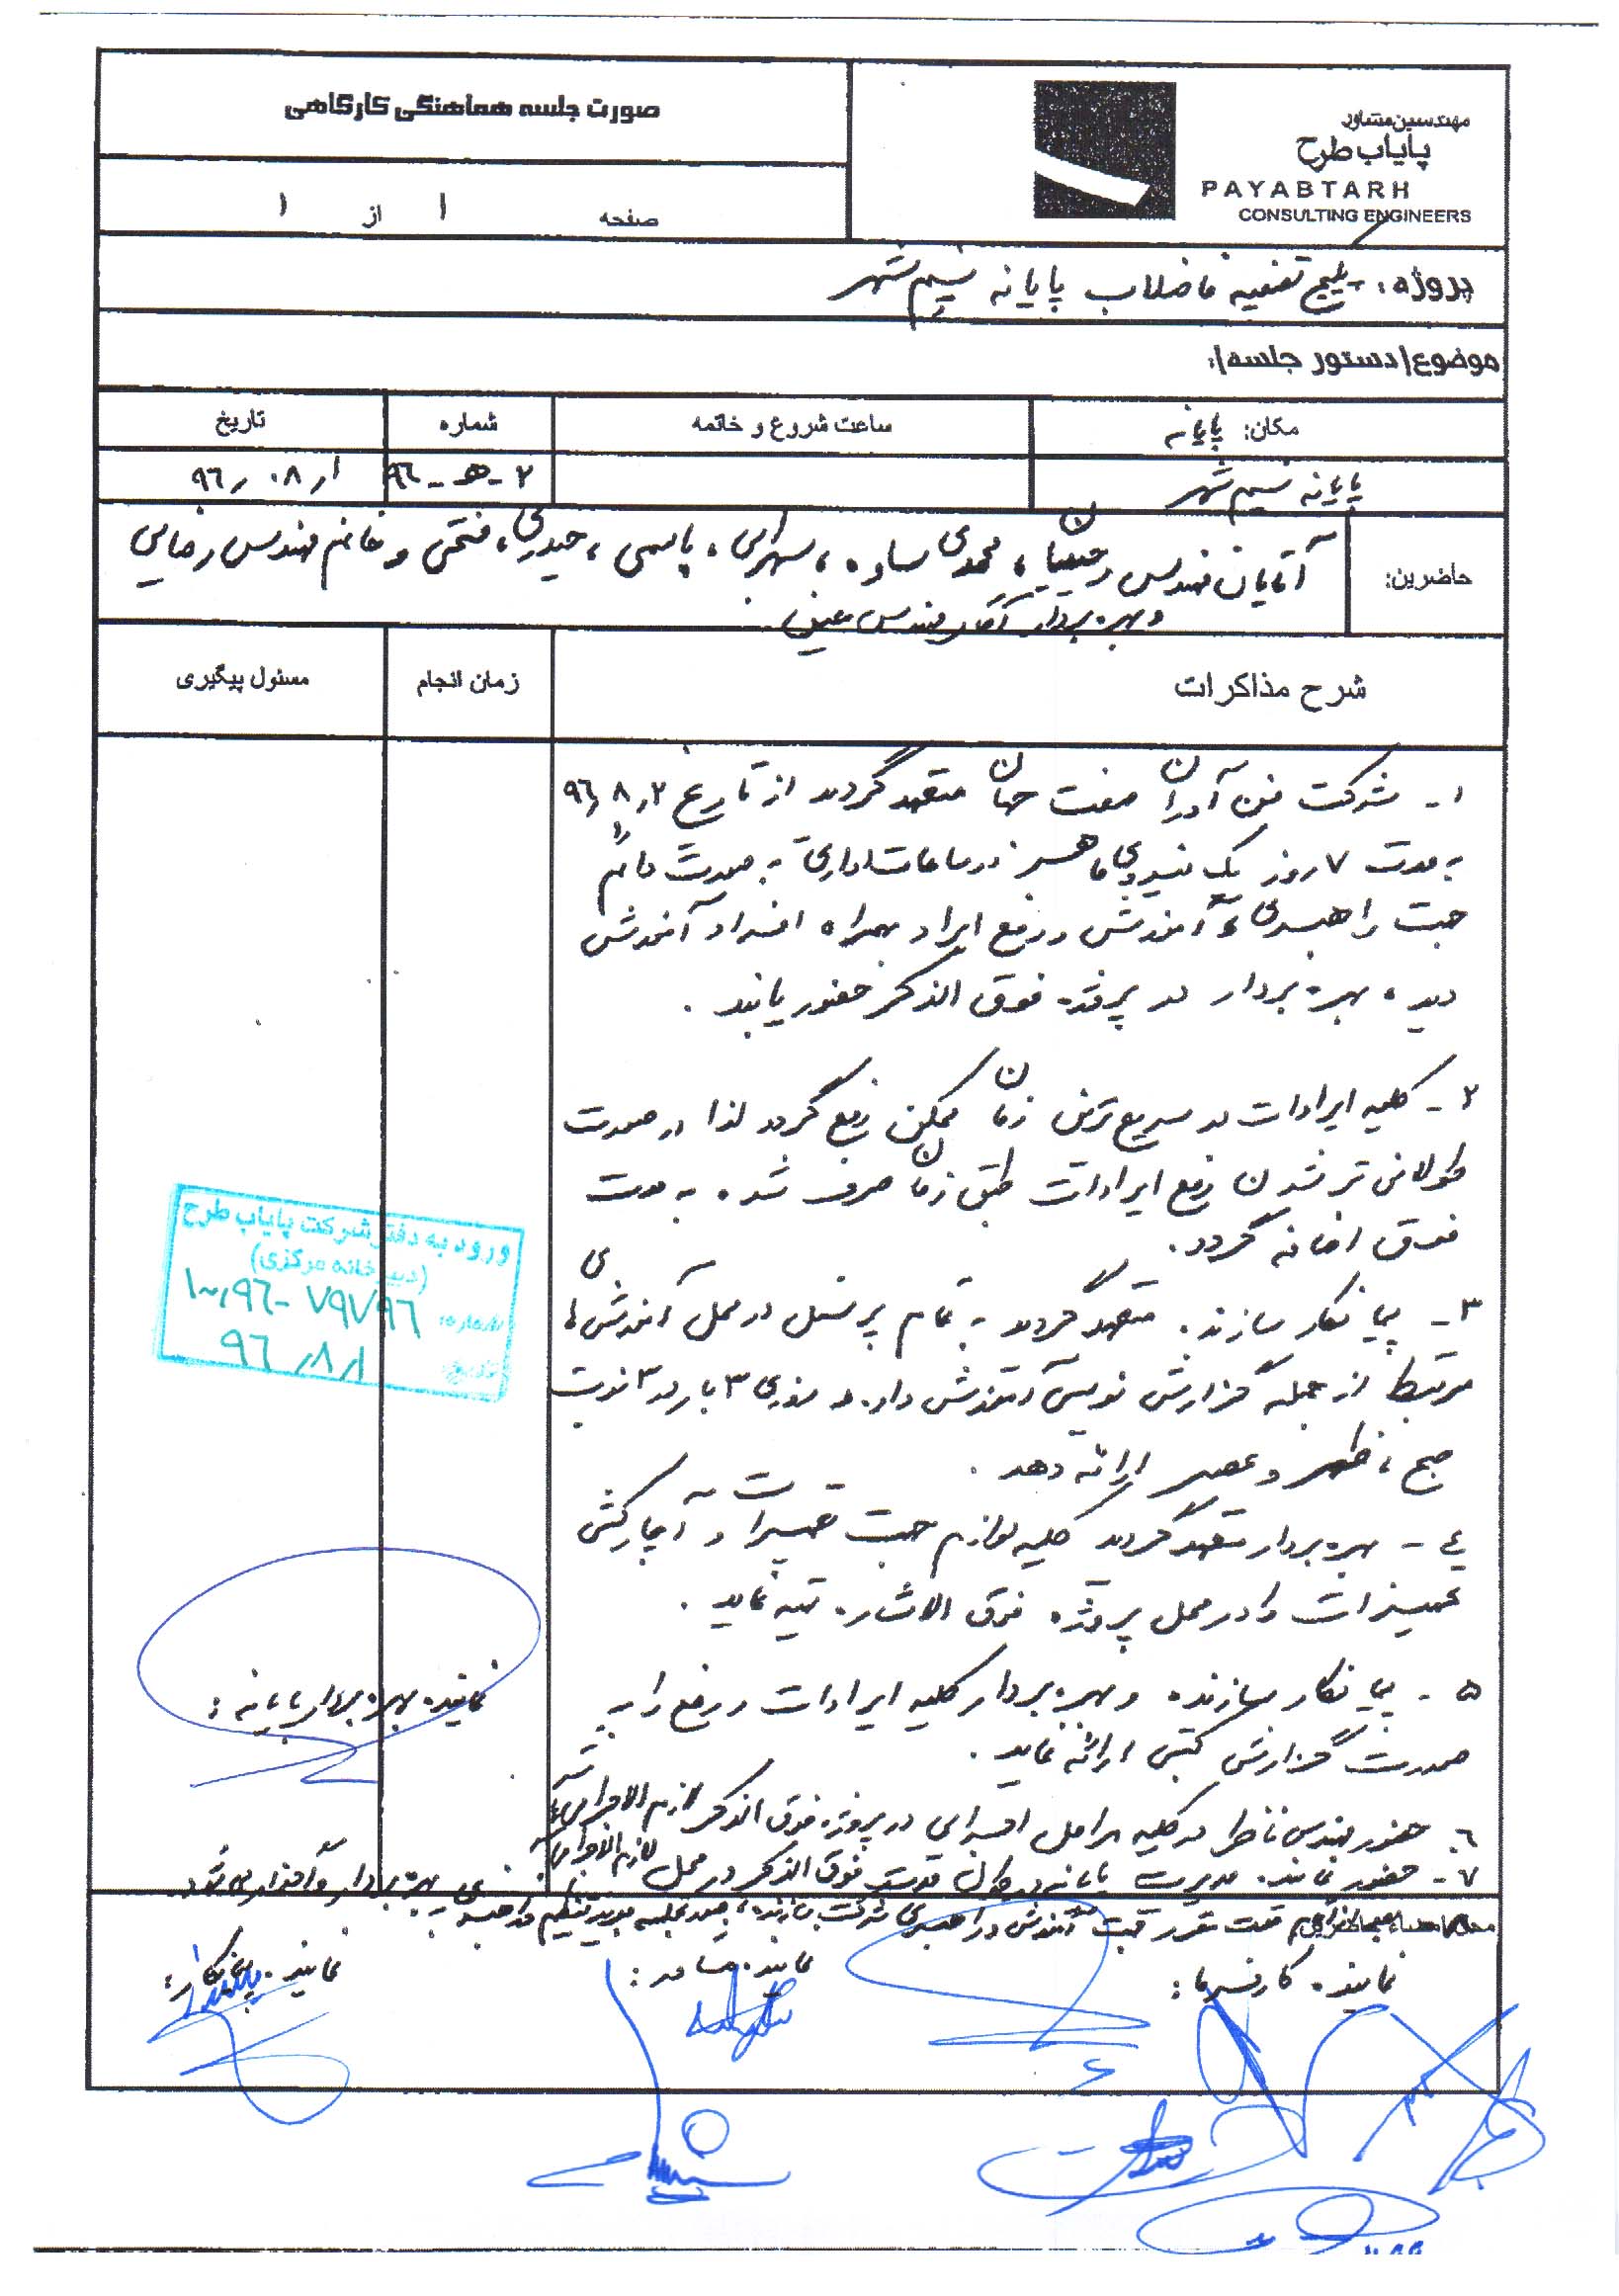 صورت جلسه هماهنگی کارگاهی
صفحه ۱ از ۱
مهندسین مشاور
پایاب طرح
PAYABTARH
CONSULTING ENGINEERS
پروژه: پکیج تصفیه فاضلاب پایانه نسیم شهر
موضوع/دستور جلسه/:
مکان: پایانه
ساعت شروع و خاتمه
شماره
تاریخ
پایانه نسیم شهر
۲-ه-۹۶
۹۶/۰۸/۱
حاضرین:
آقایان مهندس محمدی ساوه، سهرابی، حیدری، فتحی و خانم مهندس رضایی
و بهره بردار آقای مهندس معینی
شرح مذاکرات
زمان انجام
مسئول پیگیری
۱- شرکت فن آوران صنعت جهان متعهد گردید از تاریخ ۹۶/۸/۲
به مدت ۷ روز یک نیروی ماهر در ساعات اداری به صورت دائم
جهت راهبری و آموزش و رفع ایراد بهمراه افراد آموزش
دیده بهره بردار در پروژه فوق الذکر حضور یابند.
۲- کلیه ایرادات در سریع ترین زمان ممکن رفع گردد لذا در صورت
طولانی تر شدن رفع ایرادات طبق زمان صرف شده به مدت
فوق اضافه گردد.
۳- پیمانکار سازنده متعهد گردید به تمام پرسنل در محل آموزش های
مرتبط از جمله گزارش نویسی آموزش داده و روزی ۳ بار در ۳ نوبت
صبح، ظهر و عصر ارائه دهد.
۴- بهره بردار متعهد گردید کلیه لوازم جهت تعمیرات و آچارکشی
تجهیزات را در محل پروژه فوق الاشاره تهیه نماید.
۵- پیمانکار سازنده و بهره بردار کلیه ایرادات و رفع را به
صورت گزارش کتبی ارائه نماید.
۶- حضور مهندس ناظر در کلیه مراحل اجرایی در پروژه فوق الذکر لازم الاجرا می باشد
۷- حضور نماینده مدیریت پایانه در طول مدت فوق الذکر در محل لازم الاجرا
ورود به دفتر شرکت پایاب طرح
(دبیرخانه مرکزی)
شماره: ۱۰۰/۹۶-۷۹۷۹۶
تاریخ: ۹۶/۸/۱
نماینده بهره بردار پایانه:
نماینده کارفرما:
نماینده مشاور:
نماینده پیمانکار: